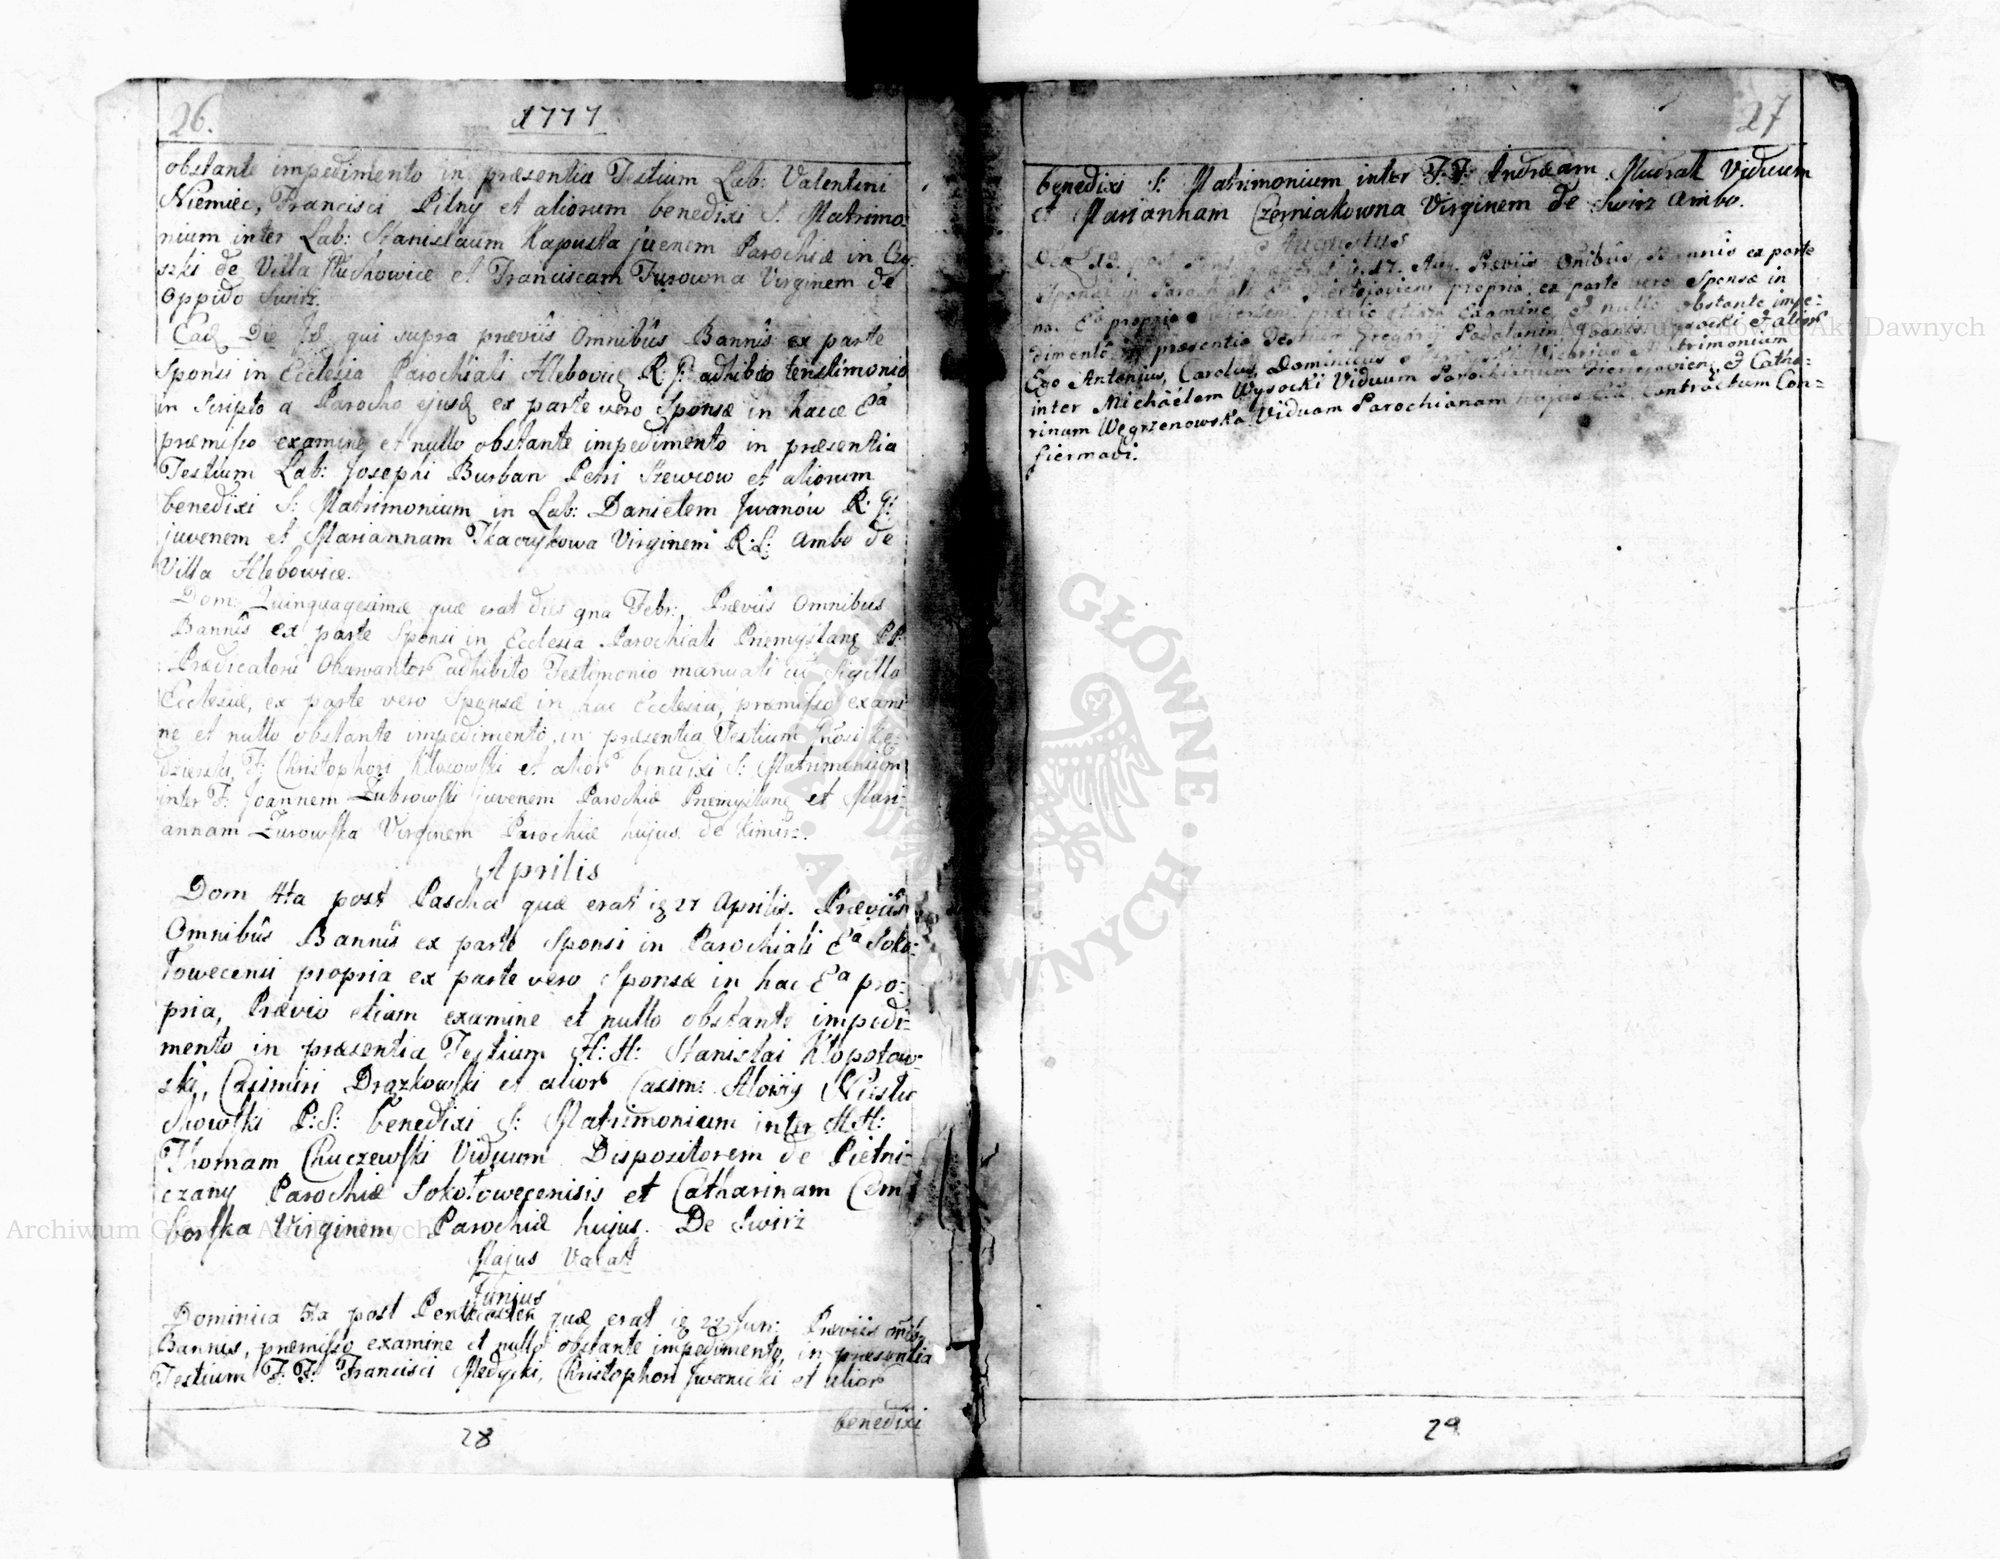 26.
1777
obstante impedimento in præsentia Testium Lab: Valentini
Niemiec, Francisci Pilny et aliorum benedixi S: Matrimo-
nium inter Lab: Stanislaum Kapusta juenem Parochiæ in
szki de Villa et Franciscam Turowna Virginem de
Oppido Swirz.
Eadq Die qui supra præviis Omnibûs Bannîs ex parte
Sponsi in Ecclesia Parochiali R: G: adhibito testimonio
in Scripto a Parocho ejusdq ex parte vero Sponsæ in hacce Ea
præmisso examine et nullo obstante impedimento in præsentia
Testium Lab: Josephi Burban Petri et aliorum
benedixi S: Matrimonium in Lab: Danielem Jwanow R: G:
juvenem et Mariannam Virginem R: L: Ambo de
Villa Hlebowice.
Dom: Quinquagesimæ quæ erat dies 9na Febr: Præviîs Omnibus
Bannîs ex parte Sponsi in Ecclesia Parochiali PP:
adhibito Testimonio manuali cũ Sigillo
Ecclesiæ, ex parte vero Sponsæ in hac Ecclesia, præmisso exami
ne et nullo obstante impedimento in præsentia Testium
dzierski, F: Christophori et alior benedixi S: Matrimonium
inter F: Joannem Zubrowski juvenem Parochiæ et Mari-
annam Zurowska Virginem Parochiæ hujus de
Aprilis
Dom 4ta post Pascha quæ erat 27 Aprilis. Præviîs
Omnibûs Bannîs ex parte Sponsi in Parochiali Ea Soko-
łowecensi propria ex parte vero Sponsæ in hac Ea pro-
pria, Prævio etiam examine et nullo obstante impedi-
mento in præsentia Testium H: H: Stanislai Kłopotow-
ski, Casimiri Drązkowski et alior Casim:
P: S: benedixi S: Matrimonium inter H: H:
Thomam Chuczewski Viduum Dispositorem de Pietni-
czany Parochiæ Sokołowecensis et Catharinam Cem
borska Virginem Parochiæ hujus. De Swirz
Majus Vacat
Junius
Dominica 5ta post Pentecosten quæ erat 22 Jun: Præviis
Bannis, præmisso examine et nullo obstante impedimento, in præsentia
Testium F: F: Francisci Medycki, Christophori Jwanicki et alior
benedixi
28
27
benedixi S: Matrimonium inter F: F: Andræam Mudrak Viduum
et Mariannam Czerniakowna Virginem de Swirz Ambo.
Augustus
post 17. Aug. Præviis Omibûs Bannîs ex parte
Sponsi in propria, ex parte vero Sponsæ in
Ea propria prævio etiam Examine et nullo obstante impe-
dimentô in præsentia Testium et alior
Ego Antonius, Carolus, Dominicus Vicarius Matrimonium
inter Michaëlem Wysocki Viduum Parochianum et Catha-
rinam Węgrzenowska Viduam Parochianam hujus Contractum Con-
firmavi.
29
ARCHIWUM GŁÓWNE AKT DAWNYCH
Archiwum Główne Akt Dawnych
Archiwum Główne Akt Dawnych